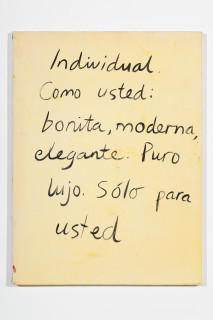 Individual.
Como usted:
bonita, moderna,
elegante. Puro
lujo. Sólo para
usted